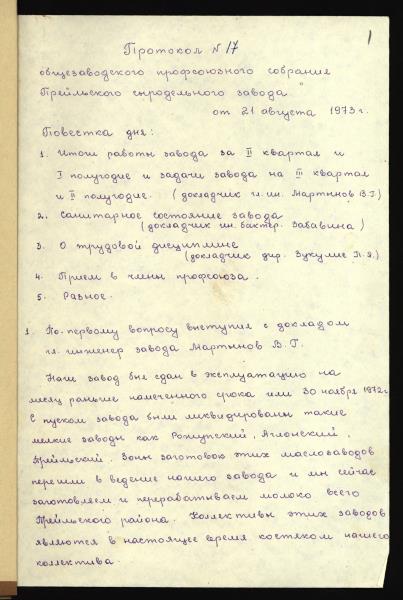 1
Протокол N 17
общезаводского профсоюзного собрания
Прейльского сыродельного завода.
от 21 августа 1973 г.
Повестка дня:
1. Итоги работы завода за II квартал и
I полугодие и задачи завода на III квартал
и II полугодие. (докладчик гл. ин. Мартынов В.Г.)
2. Санитарное состояние завода
(докладчик ин. бактер. Забавина)
3. О трудовой дисциплине
(докладчик дир. Зукулис П.Я.)
4. Прием в члены профсоюза.
5. Разное.
1. По-первому вопросу выступил с докладом
гл. инженер завода Мартынов В.Г.
Наш завод был сдан в эксплуатацию на
месяц раньше намеченного срока или 30 ноября 1972г.
С пуском завода были ликвидированы такие
мелкие заводы как Рожупский, Аглонский,
Прейльский. Зоны заготовок этих маслозаводов
перешли в ведение нашего завода и мы сейчас
заготовляем и перерабатываем молоко всего
Прейльского района. Коллективы этих заводов
являются в настоящее время костяком нашего
коллектива.